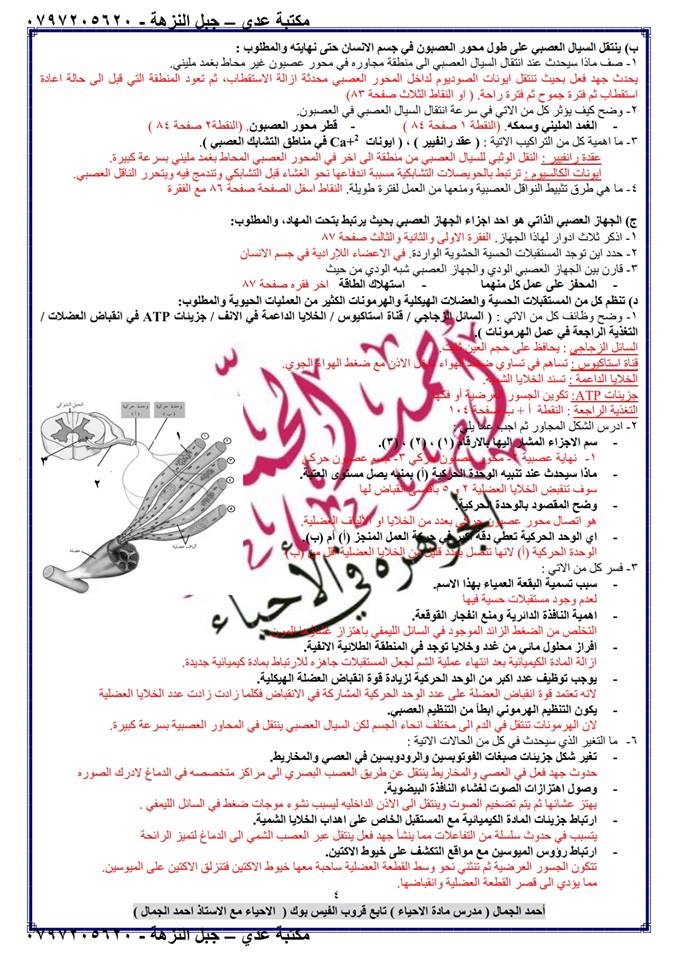 مكتبة عدي – جبل النزهة - ٠٧٩٧٢٠٥٦٢٠
ب) ينتقل السيال العصبي على طول محور العصبون في جسم الانسان حتى نهايته والمطلوب :
١- صف ماذا سيحدث عند انتقال السيال العصبي الى منطقة مجاوره في محور عصبون غير محاط بغمد مليني.
يحدث جهد فعل بحيث تنتقل ايونات الصوديوم لداخل المحور العصبي محدثة ازالة الاستقطاب، ثم تعود المنطقة التي قبل الى حالة اعادة
استقطاب ثم فترة جموح ثم فترة راحة. ( او النقاط الثلاث صفحة ٨٣)
٢- وضح كيف يؤثر كل من الاتي في سرعة انتقال السيال العصبي في العصبون.
- الغمد المليني وسمكه. (النقطة ١ صفحة ٨٤ ) - قطر محور العصبون. (النقطة٢ صفحة ٨٤ )
٣- ما اهمية كل من التراكيب الاتية : ( عقد رانفيير ) ، ( ايونات Ca+² في مناطق التشابك العصبي ).
عقدة رانفيير : النقل الوثبي للسيال العصبي من منطقة الى اخر في المحور العصبي المحاط بغمد مليني بسرعة كبيرة.
ايونات الكالسيوم : ترتبط بالحويصلات التشابكية مسببة اندفاعها نحو الغشاء قبل التشابكي وتندمج فيه ويتحرر الناقل العصبي.
٤- ما هي طرق تثبيط النواقل العصبية ومنعها من العمل لفترة طويلة. النقاط اسفل الصفحة صفحة ٨٦ مع الفقرة
ج) الجهاز العصبي الذاتي هو احد اجزاء الجهاز العصبي بحيث يرتبط بتحت المهاد، والمطلوب:
١- اذكر ثلاث ادوار لهذا الجهاز. الفقرة الاولى والثانية والثالث صفحة ٨٧
٢- حدد اين توجد المستقبلات الحسية الحشوية الواردة. في الاعضاء اللاإرادية في جسم الانسان
٣- قارن بين الجهاز العصبي الودي والجهاز العصبي شبه الودي من حيث
- المحفز على عمل كل منهما - استهلاك الطاقة اخر فقره صفحة ٨٧
د) تنظم كل من المستقبلات الحسية والعضلات الهيكلية والهرمونات الكثير من العمليات الحيوية والمطلوب:
١- وضح وظائف كل من الاتي : ( السائل الزجاجي / قناة استاكيوس / الخلايا الداعمة في الانف / جزيئات ATP في انقباض العضلات /
التغذية الراجعة في عمل الهرمونات ).
السائل الزجاجي : يحافظ على حجم العين ثابت.
قناة استاكيوس : تساهم في تساوي ضغط الهواء داخل الاذن مع ضغط الهواء الجوي.
الخلايا الداعمة : تسند الخلايا الشمية.
جزيئات ATP: تكوين الجسور العرضية أو فكها
التغذية الراجعة : النقطة أ + ب صفحة ١٠٤
٢- ادرس الشكل المجاور ثم اجب عما يلي :
- سم الاجزاء المشار إليها بالارقام (١) ، (٢) ، (٣).
١- نهاية عصبية ٢- محور عصبون حركي ٣- جسم عصبون حركي
- ماذا سيحدث عند تنبيه الوحدة الحركية (أ) بمنبه يصل مستوى العتبة.
سوف تنقبض الخلايا العضلية ٢ و ٥ بأقصى انقباض لها
- وضح المقصود بالوحدة الحركية.
هو اتصال محور عصبون حركي بعدد من الخلايا او الألياف العضلية.
- اي الوحد الحركية تعطي دقة اكبر في حركة العمل المنجز (أ) أم (ب).
الوحدة الحركية (أ) لانها تتصل بعدد قليل من الخلايا العضلية اقل من (ب)
٣- فسر كل من الاتي :
- سبب تسمية البقعة العمياء بهذا الاسم.
لعدم وجود مستقبلات حسية فيها
- اهمية النافذة الدائرية ومنع انفجار القوقعة.
التخلص من الضغط الزائد الموجود في السائل الليمفي باهتزاز غشاؤها المرن.
- افراز محلول مائي من غدد وخلايا توجد في المنطقة الطلائية الانفية.
ازالة المادة الكيميائية بعد انتهاء عملية الشم لجعل المستقبلات جاهزه للارتباط بمادة كيميائية جديدة.
- يوجب توظيف عدد اكبر من الوحد الحركية لزيادة قوة انقباض العضلة الهيكلية.
لانه تعتمد قوة انقباض العضلة على عدد الوحد الحركية المشاركة في الانقباض فكلما زادت زادت عدد الخلايا العضلية
- يكون التنظيم الهرموني ابطأ من التنظيم العصبي.
لان الهرمونات تنتقل في الدم الى مختلف انحاء الجسم لكن السيال العصبي ينتقل في المحاور العصبية بسرعة كبيرة.
٦- ما التغير الذي سيحدث في كل من الحالات الاتية :
- تغير شكل جزيئات صبغات الفوتوبسين والرودوبسين في العصي والمخاريط.
حدوث جهد فعل في العصي والمخاريط ينتقل عن طريق العصب البصري الى مراكز متخصصه في الدماغ لادرك الصوره
- وصول اهتزازات الصوت لغشاء النافذة البيضوية.
يهتز غشائها ثم يتم تضخيم الصوت وينتقل الى الاذن الداخليه ليسبب نشوء موجات ضغط في السائل الليمفي .
- ارتباط جزيئات المادة الكيميائية مع المستقبل الخاص على اهداب الخلايا الشمية.
يتسبب في حدوث سلسلة من التفاعلات مما ينشأ جهد فعل ينتقل عبر العصب الشمي الى الدماغ لتميز الرائحة
- ارتباط رؤوس الميوسين مع مواقع التكشف على خيوط الاكتين.
تتكون الجسور العرضية ثم تنثني نحو وسط القطعة العضلية ساحبة معها خيوط الاكتين فتنزلق الاكتين على الميوسين.
مما يؤدي الى قصر القطعة العضلية وانقباضها.
٤
أحمد الجمال ( مدرس مادة الاحياء ) تابع قروب الفيس بوك ( الاحياء مع الاستاذ احمد الجمال )
مكتبة عدي – جبل النزهة - ٠٧٩٧٢٠٥٦٢٠